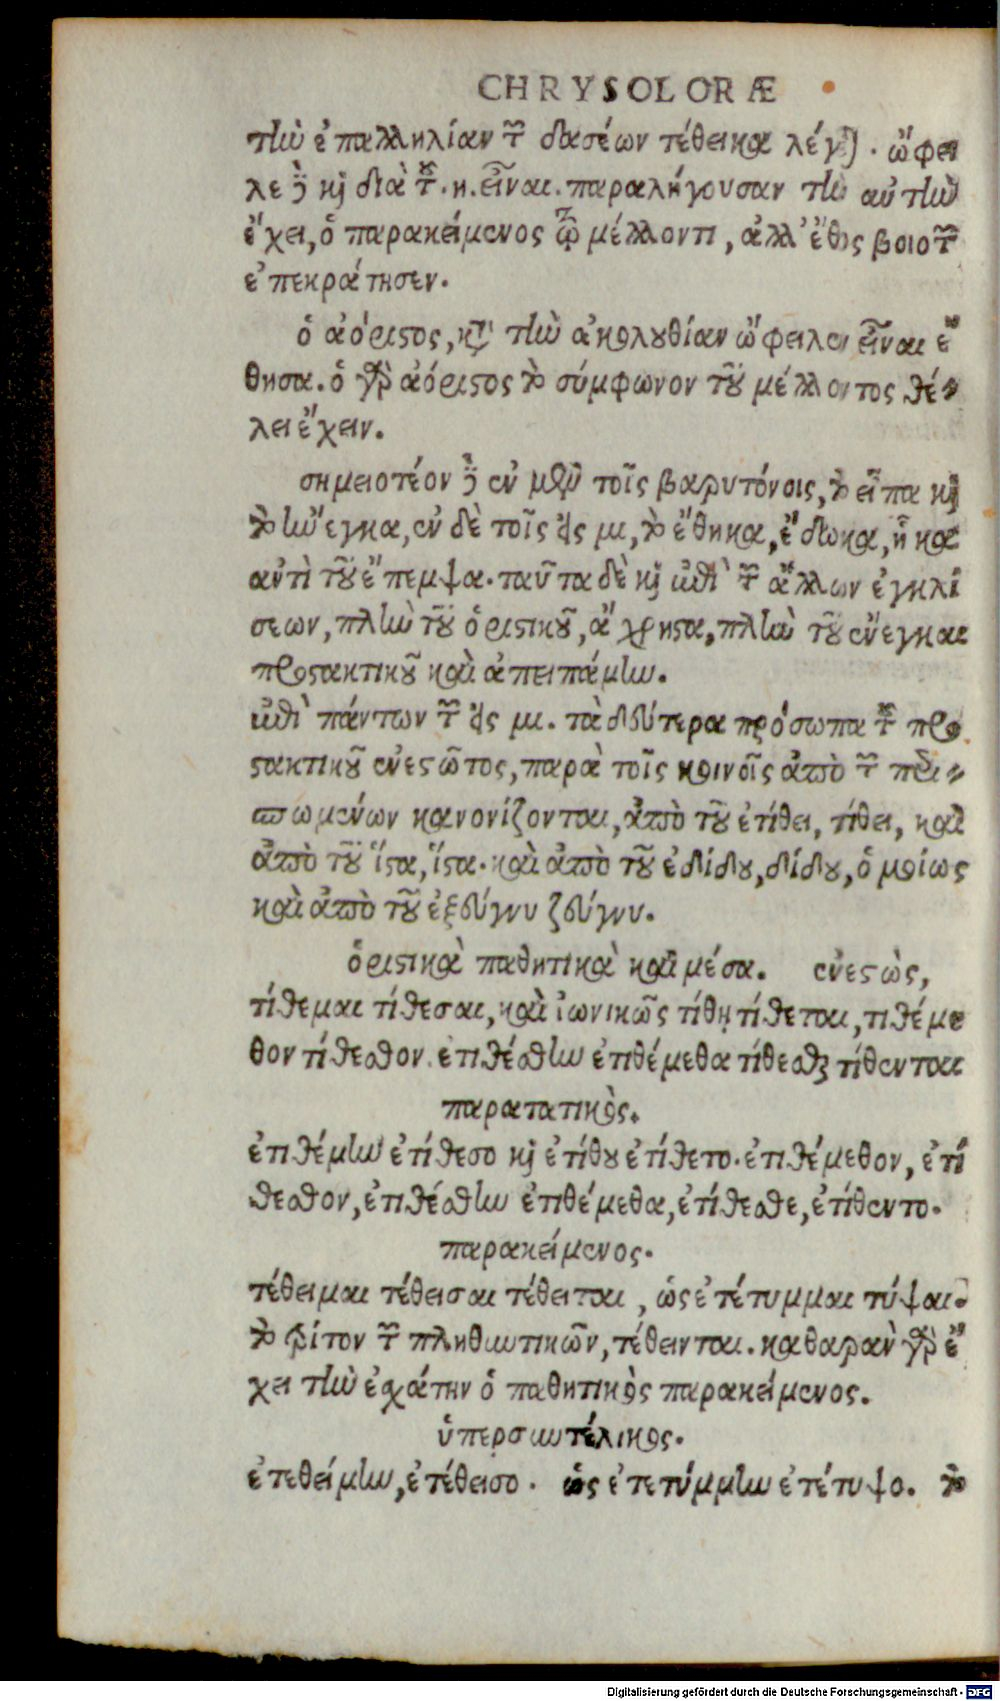 CHRYSOLORÆ
τὴν ἐπαλληλίαν τῶν δασέων τέθεικα λέγεται. ὤφει
λε δὲ καὶ διὰ τοῦ. η. εἶναι. παραλήγουσαν τὴν αὐτὴν
ἔχει, ὁ παρακείμενος τῷ μέλλοντι, ἀλλ' ἔθος βοιοτῶν
ἐπεκράτησεν.
ὁ ἀόριστος, κατὰ τὴν ἀκολουθίαν ὤφειλεν εἶναι ἔ
θησα. ὁ γὰρ ἀόριστος τὸ σύμφωνον τοῦ μέλλοντος θέ-
λει ἔχειν.
σημειοτέον δὲ ἐν μὲν τοῖς βαρυτόνοις, τὸ εἶπα καὶ
τὸ ἤνεγκα, ἐν δὲ τοῖς εἰς μι, τὸ ἔθηκα, ἔδωκα, ἧκα
αὐτὶ τοῦ ἔπεμψα. ταῦτα δὲ καὶ ἐπὶ τῶν ἄλλων ἐγκλί
σεων, πλὴν τοῦ ὁριστικοῦ, ἄχρηστα, πλὴν τοῦ ἐνέγκαι
προστακτικοῦ καὶ ἀπειπάμην.
ἐπὶ πάντων τῶν εἰς μι. τὰ δεύτερα πρόσωπα τοῦ προ
στακτικοῦ ἐνεστῶτος, παρὰ τοῖς κοινοῖς ἀπὸ τῶν περι-
σπωμένων κανονίζονται, ἀπὸ τοῦ ἐτίθει, τίθει, καὶ
ἀπὸ τοῦ ἵστα, ἵστα. καὶ ἀπὸ τοῦ ἐδίδου, δίδου, ὁμοίως
καὶ ἀπὸ τοῦ ἐζεύγνυ ζεύγνυ.
ὁριστικὰ παθητικὰ καὶ μέσα. ἐνεστὼς,
τίθεμαι τίθεσαι, καὶ ἰωνικῶς τίθῃ τίθεται, τιθέμε
θον τίθεσθον ἐτιθέσθην ἐτιθέμεθα τίθεσθε τίθενται
παρατατικὸς.
ἐτιθέμην ἐτίθεσο καὶ ἐτίθου ἐτίθετο. ἐτιθέμεθον, ἐτί
θεσθον, ἐτιθέσθην ἐτιθέμεθα, ἐτίθεσθε, ἐτίθεντο.
παρακείμενος.
τέθειμαι τέθεισαι τέθειται, ὡς ἐτέτυμμαι τύψαι.
τὸ τρίτον τῶν πληθυντικῶν, τέθεινται. καθαρὰν γὰρ ἔ
χει τὴν ἐσχάτην ὁ παθητικὸς παρακείμενος.
ὑπερσυντέλικος.
ἐτεθείμην, ἐτέθεισο. ὡς ἐτετύμμην ἐτέτυψο. τὸ
Digitalisierung gefördert durch die Deutsche Forschungsgemeinschaft - DFG